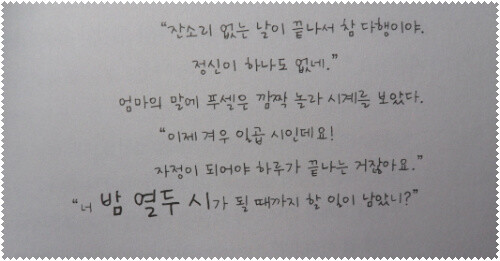 “잔소리 없는 날이 끝나서 참 다행이야.
정신이 하나도 없네.”
엄마의 말에 푸셀은 깜짝 놀라 시계를 보았다.
“이제 겨우 일곱 시인데요!
자정이 되어야 하루가 끝나는 거잖아요.”
“너 밤 열두 시가 될 때까지 할 일이 남았니?”